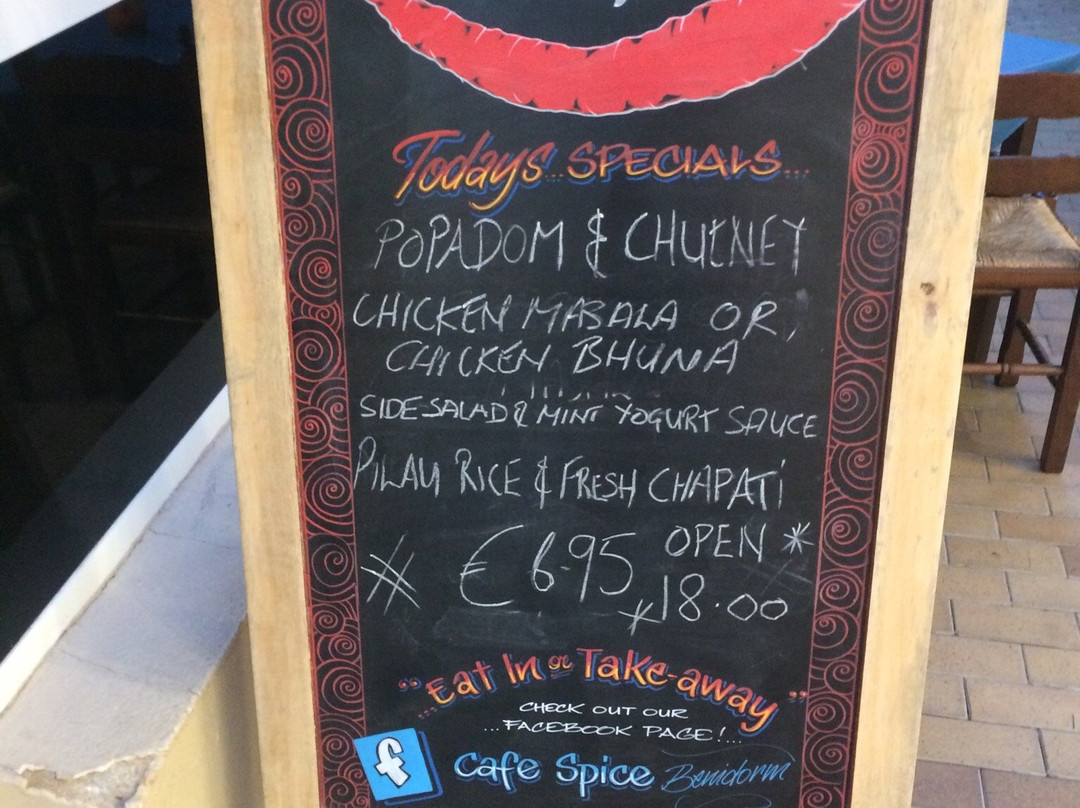 Todays... SPECIALS...
POPADOM & CHUTNEY
CHICKEN MASALA OR,
CHICKEN BHUNA
SIDE SALAD & MINT YOGURT SAUCE
PILAU RICE & FRESH CHAPATI
€ 6.95 OPEN *
* 18.00
"Eat In or Take-away"
CHECK OUT OUR
...FACEBOOK PAGE!...
f Cafe Spice Benidorm